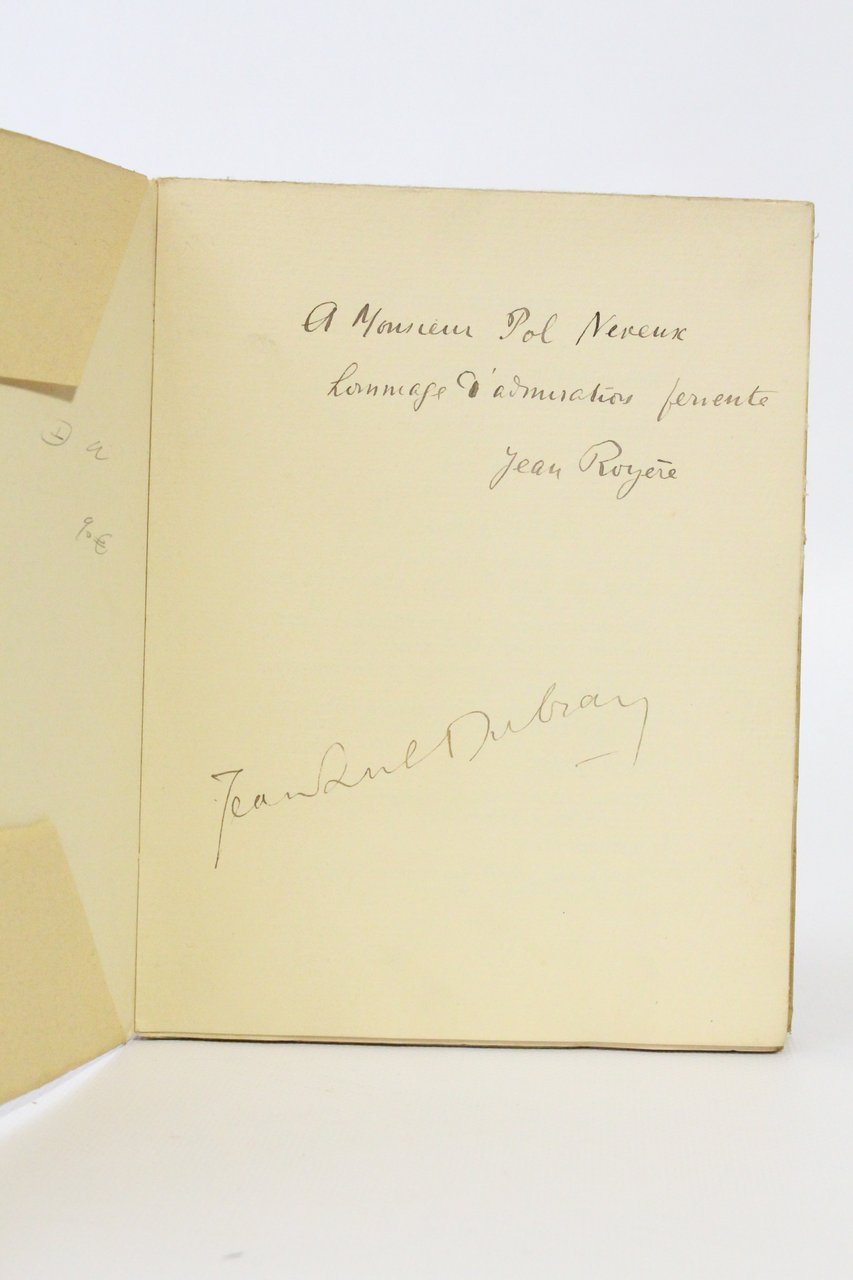 A Monsieur Pol Neveux
hommage d'admiration fervente
Jean Royère
Jean Paul Dubray